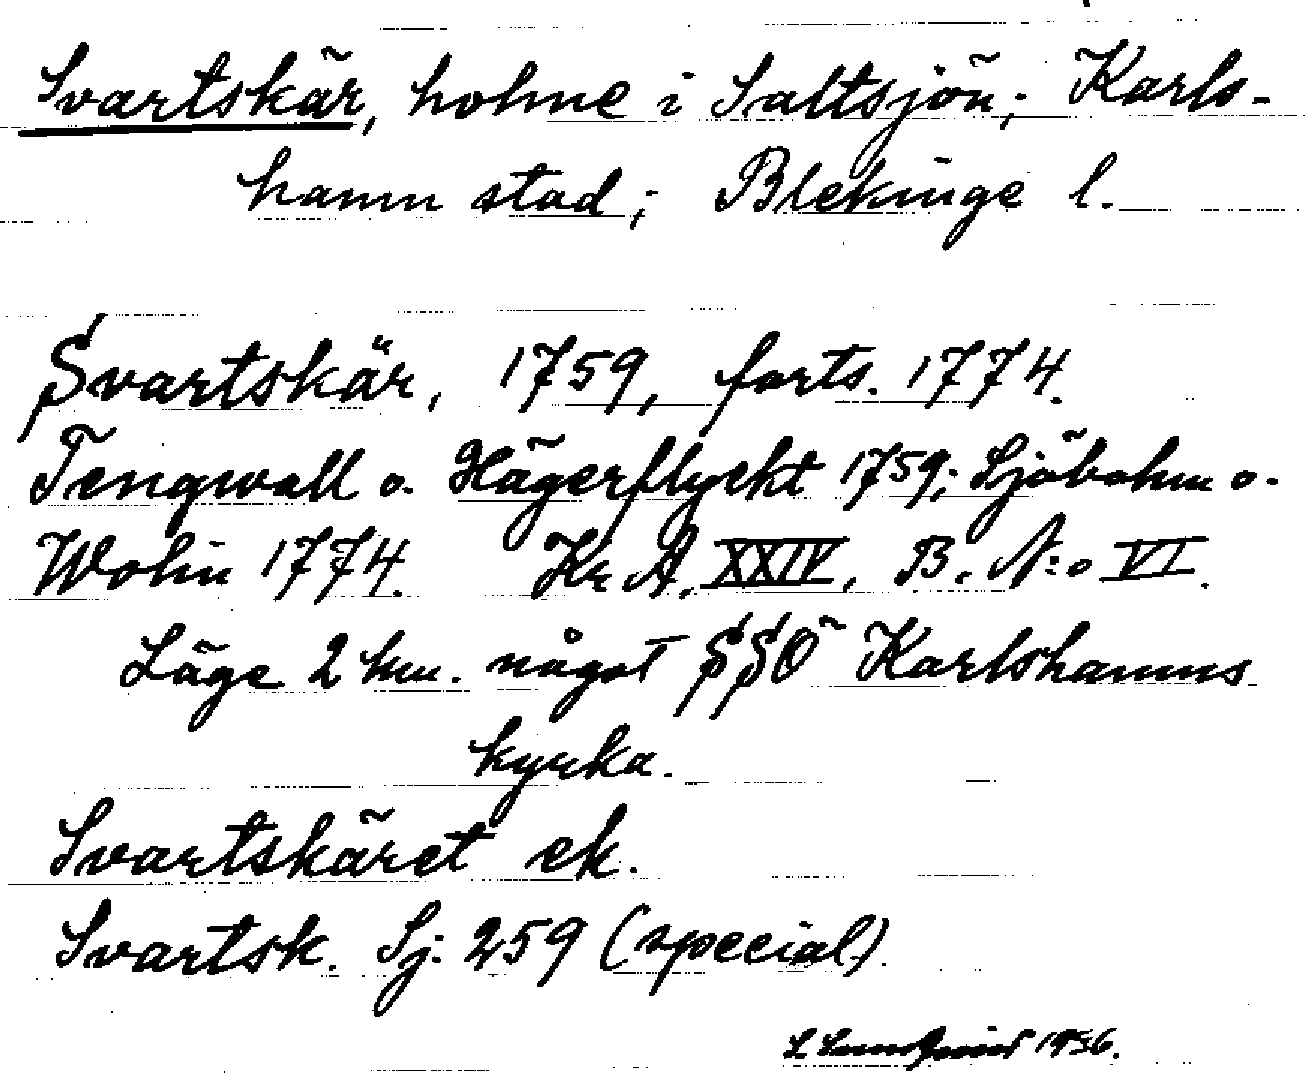 Svartskär, holme i Saltsjön; Karls-
hamn stad; Blekinge l.
Svartskär, 1759, forts. 1774.
Tengwall o. Hägerflyckt 1759; Sjöbohm o.
Wolin 1774. Kr. A. XXIV, B. N:o VI.
Läge 2 km. något SSÖ Karlshamns
kyrka.
Svartskäret ek.
Svartsk. Sj: 259 (special)
1936.